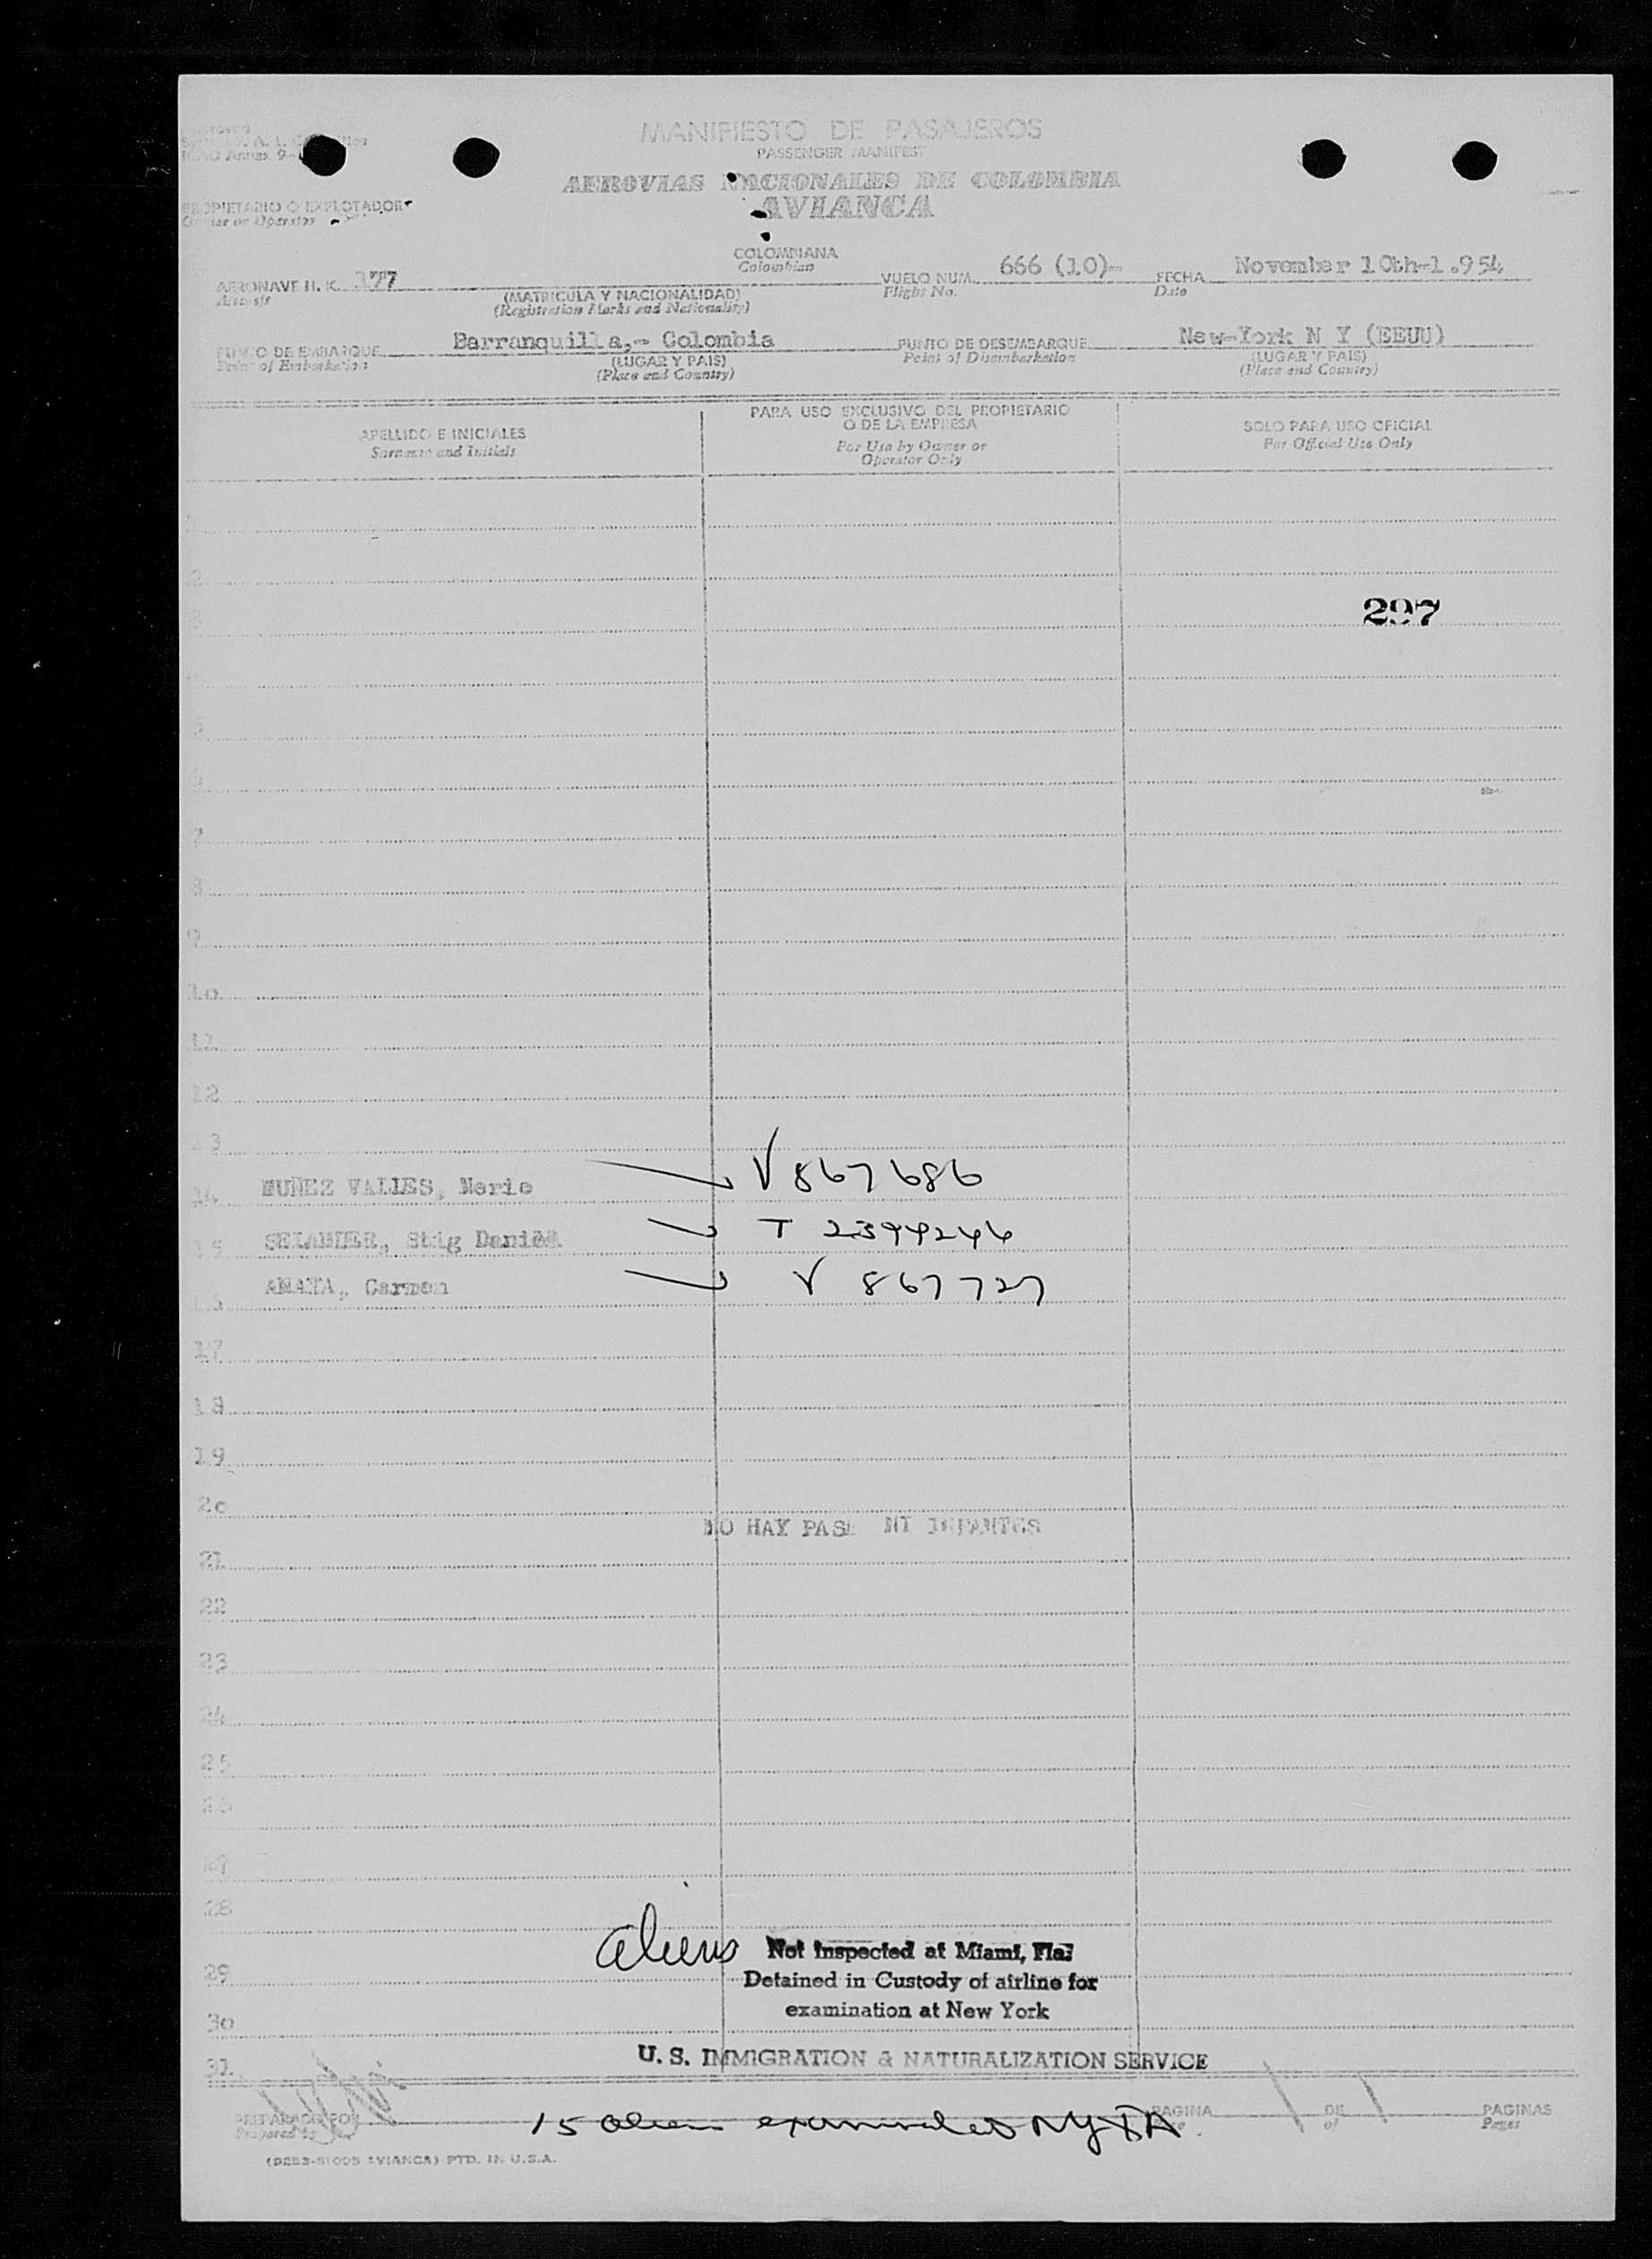 MANIFIESTO DE PASAJEROS
PASSENGER MANIFEST
AEROVIAS NACIONALES DE COLOMBIA
AVIANCA
ICAO Annex 9-
PROPIETARIO O EXPLOTADOR
Owner or Operator
COLOMBIANA
Colombian
AERONAVE H. K. 177
Aircraft
(MATRICULA Y NACIONALIDAD)
(Registration Marks and Nationality)
VUELO NUM. 666 (10)-
Flight No.
FECHA November 10th-1.954
Date
PUNTO DE EMBARQUE Barranquilla,- Colombia
Point of Embarkation
(LUGAR Y PAIS)
(Place and Country)
PUNTO DE DESEMBARQUE New-York N Y (EEUU)
Point of Disembarkation
(LUGAR Y PAIS)
(Place and Country)
APELLIDO E INICIALES
Surname and Initials
PARA USO EXCLUSIVO DEL PROPIETARIO
O DE LA EMPRESA
For Use by Owner or
Operator Only
SOLO PARA USO OFICIAL
For Official Use Only
2
3 297
5
7
8
9
10
11
12
13
14 MUÑEZ VALLES, Mario V 867686
15 SELANDER, Stig T 2394246
16 AMAYA, Carmen V 867727
17
18
19
20
NO HAY PASE NI INFANTES
21
22
23
24
25
26
27
28
aliens Not Inspected at Miami, Fla.
29 Detained in Custody of airline for
examination at New York
30
U. S. IMMIGRATION & NATURALIZATION SERVICE
31
PREPARADO POR
Prepared by
15 aliens examined at NYIA.
PAGINA 1 DE 1 PAGINAS
of Pages
AVIANCA) PTD. IN U.S.A.